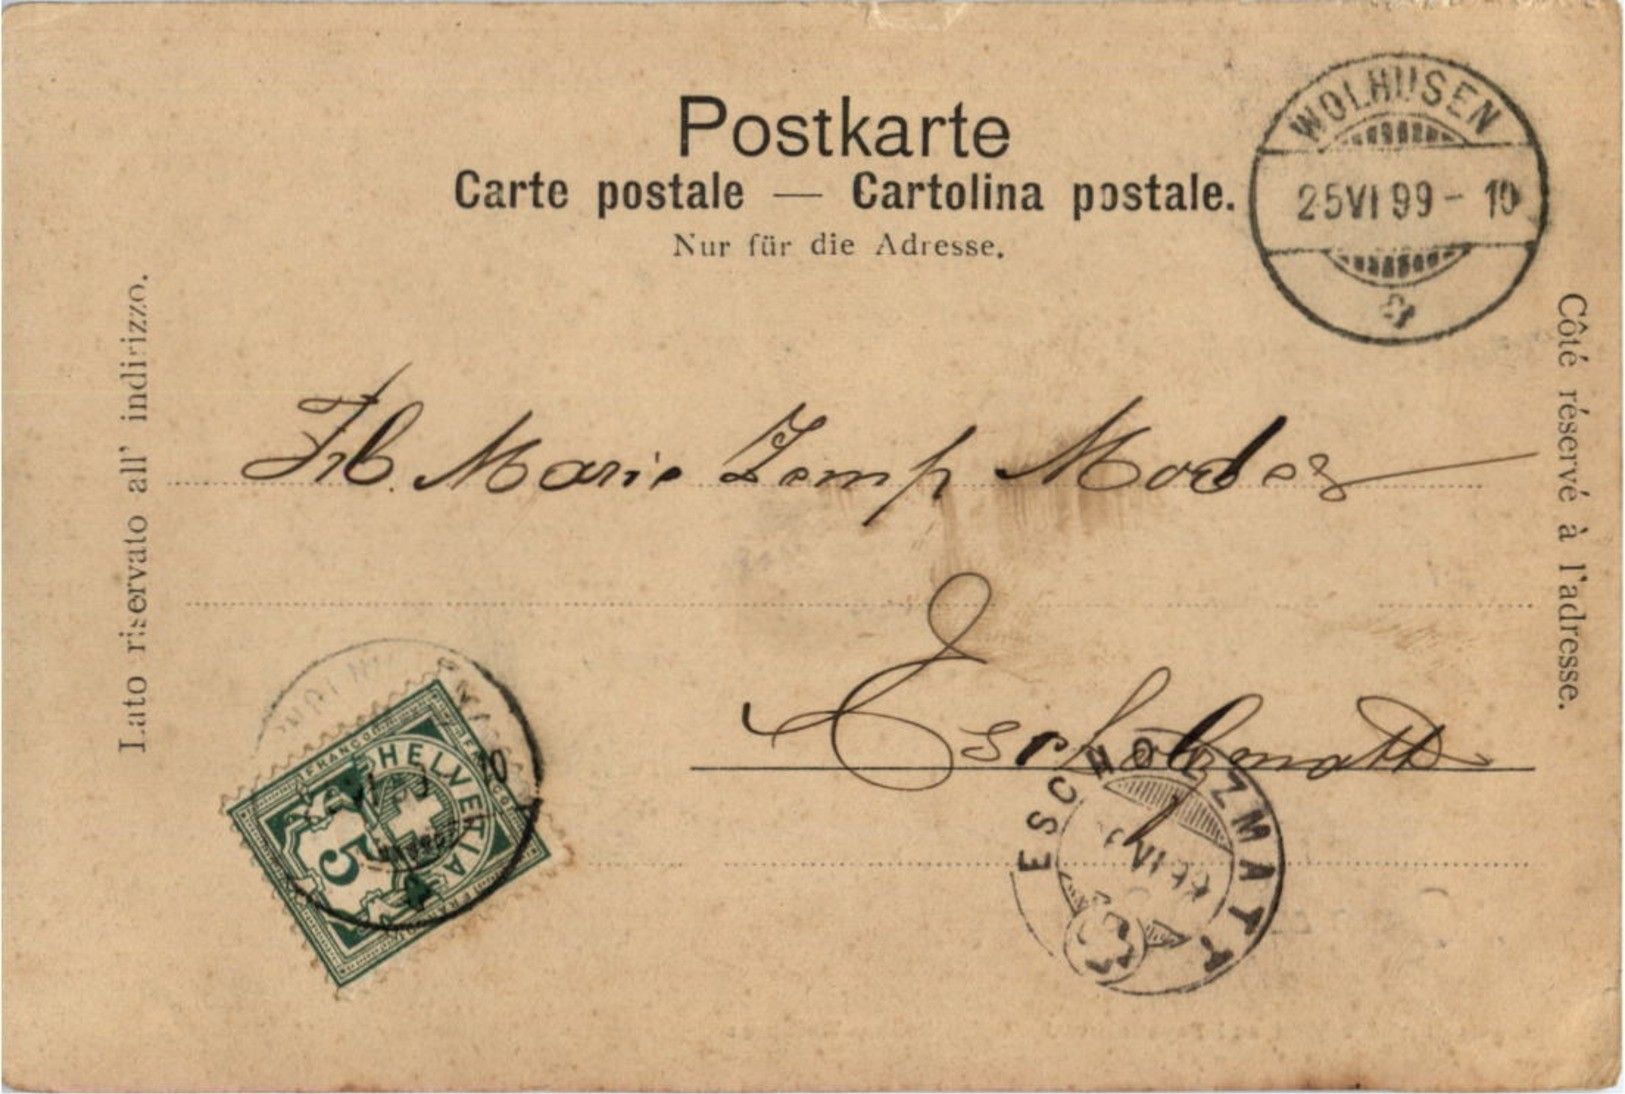 Postkarte
Carte postale — Cartolina postale.
Nur für die Adresse.
WOLHUSEN
25 VI 99 - 10
Lato riservato all' indirizzo.
Côté réservé à l'adresse.
Frl. Marie Zemp Modes
Escholzmatt
FRANCO
HELVETIA
FRANCO
5
FRANCO
FRANCO
10
ESCHOLZMATT
VI 99